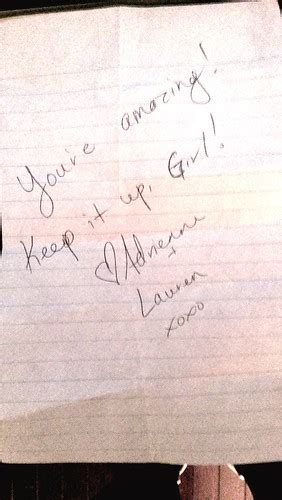 You're amazing!
Keep it up, Girl!
♡Adrienne
+
Lauren
xoxo